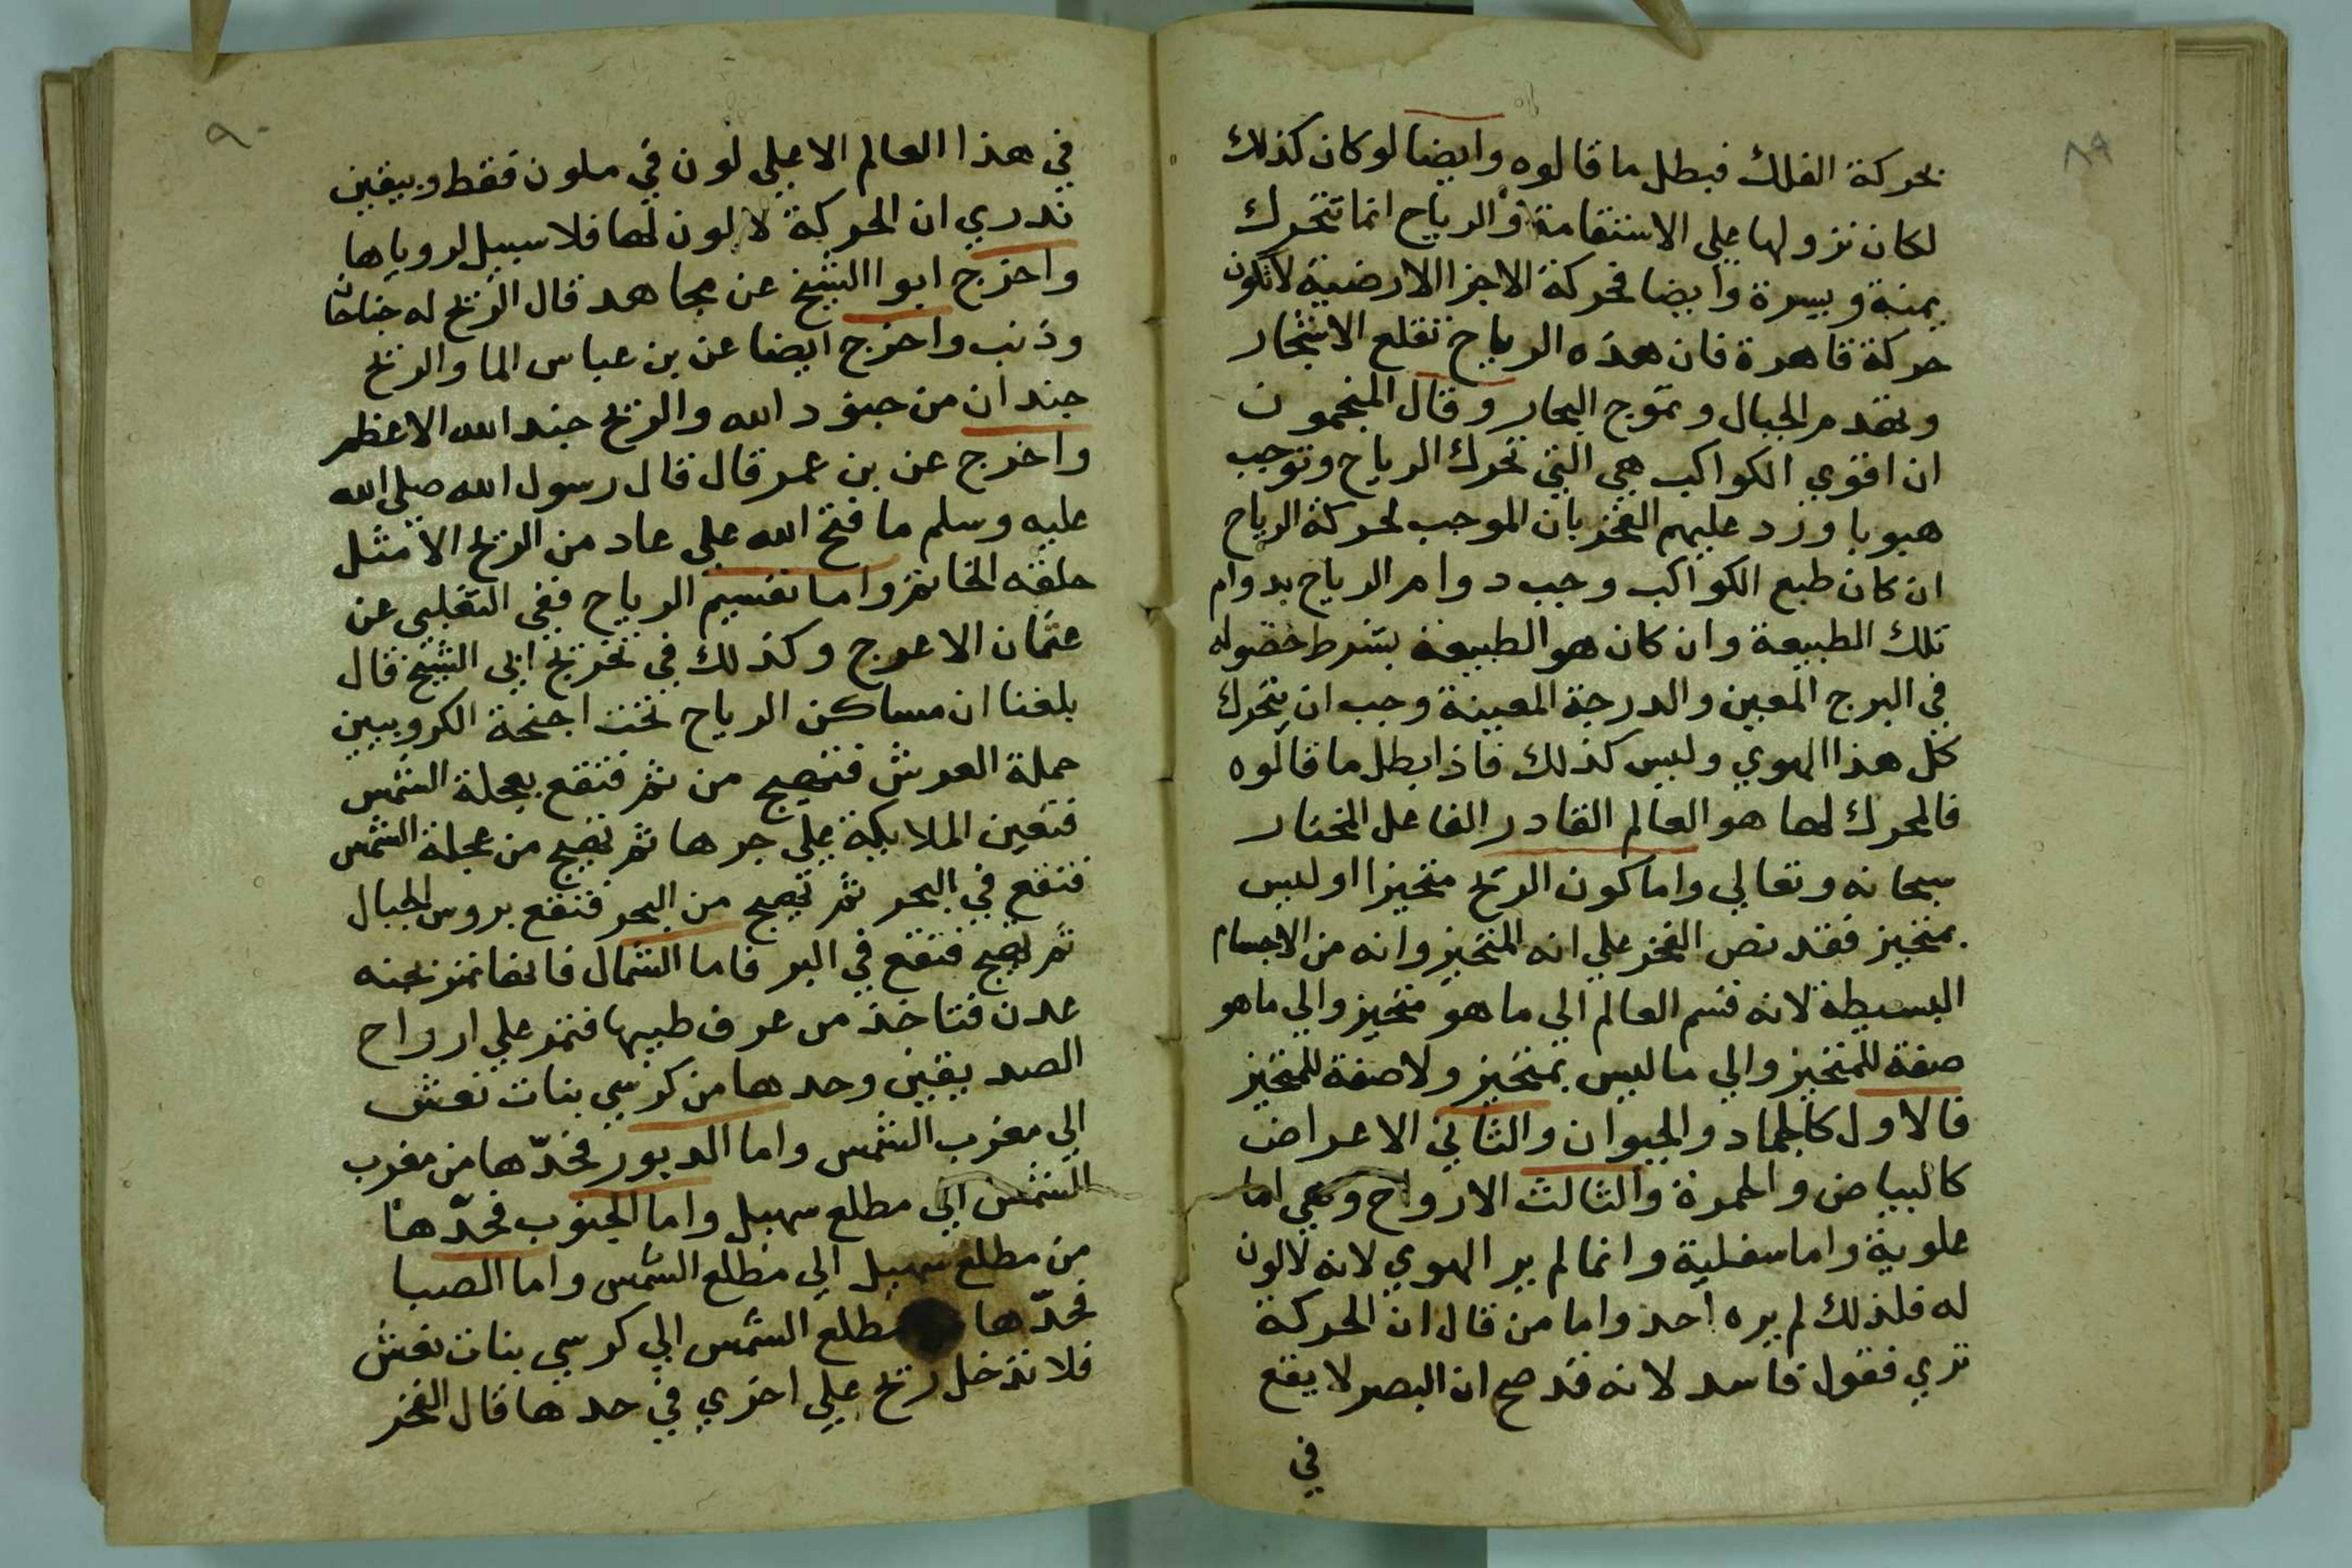 ٨٩
بحركة الفلك فبطل ما قالوه وايضا لو كان كذلك
لكان نزولها علي الاستقامة والرياح انما تتحرك
يمنة ويسرة وايضا فحركة الاجزا الارضية لا تكون
حركة قاهرة فان هذه الرياح تقلع الاشجار
وتهدم الجبال وتموج البحار وقال المنجمون
ان اقوي الكواكب هي التي تحرك الرياح وتوجب
هبوبا ورد عليهم الفخر بان الموجب لحركة الرياح
ان كان طبع الكواكب وجب دوام الرياح بدوام
تلك الطبيعة وان كان هو الطبيعة بشرط حصوله
في البرج المعين والدرجة المعينة وجب ان يتحرك
كل هذا الهوي وليس كذلك فاذا بطل ما قالوه
فالمحرك لها هو العالم القادر الفاعل المختار
سبحانه وتعالي واما كون الريح متحيزا او ليس
بمتحيز فقد نص الفخر علي انه المتحيز وانه من الاجسام
البسيطة لانه قسم العالم الي ما هو متحيز والي ما هو
صفة للمتحيز والي ما ليس بمتحيز ولا صفة للمتحيز
فالاول كالجماد والحيوان والثاني الاعراض
كالبياض والحمرة والثالث الارواح وهي اما
علوية واما سفلية وانما لم ير الهوي لانه لا لون
له فلذلك لم يره احد واما من قال ان الحركة
تري فقول فاسد لانه قد صح ان البصر لا يقع
في
٩٠
في هذا العالم الاعلي لون في ملون فقط وبيقين
ندري ان الحركة لا لون لها فلا سبيل لروياها
واخرج ابوا الشيخ عن مجاهد قال الريح له جناحان
وذنب واخرج ايضا عن بن عباس الما والريح
جندان من جنود الله والريح جند الله الاعظم
واخرج عن بن عمر قال قال رسول الله صلي الله
عليه وسلم ما فتح الله علي عاد من الريح الا مثل
حلقة الخاتم واما تقسيم الرياح ففي الثعلبي عن
عثمان الاعرج وكذلك في تخريج ابي الشيخ قال
بلغنا ان مساكن الرياح تحت اجنحة الكروبيين
حملة العرش فتهيج من ثم فتقع بعجلة الشمس
فتعين الملايكة علي جرها ثم تهيج من عجلة الشمس
فتقع في البحر ثم تهيج من البحر فتقع بروس الجبال
ثم تهيج فتقع في البر فاما الشمال فانها تمر بجنه
عدن فتاخذ من عرف طيبها فتمر علي ارواح
الصديقين وحدها من كرسي بنات نعش
الي مغرب الشمس واما الدبور فحدّها من مغرب
الشمس الي مطلع سهيل واما الجنوب فحدّها
من مطلع سهيل الي مطلع الشمس واما الصبا
فحدّها مطلع الشمس الي كرسي بنات نعش
فلا تدخل ريح علي اخري في حدها قال الفخر